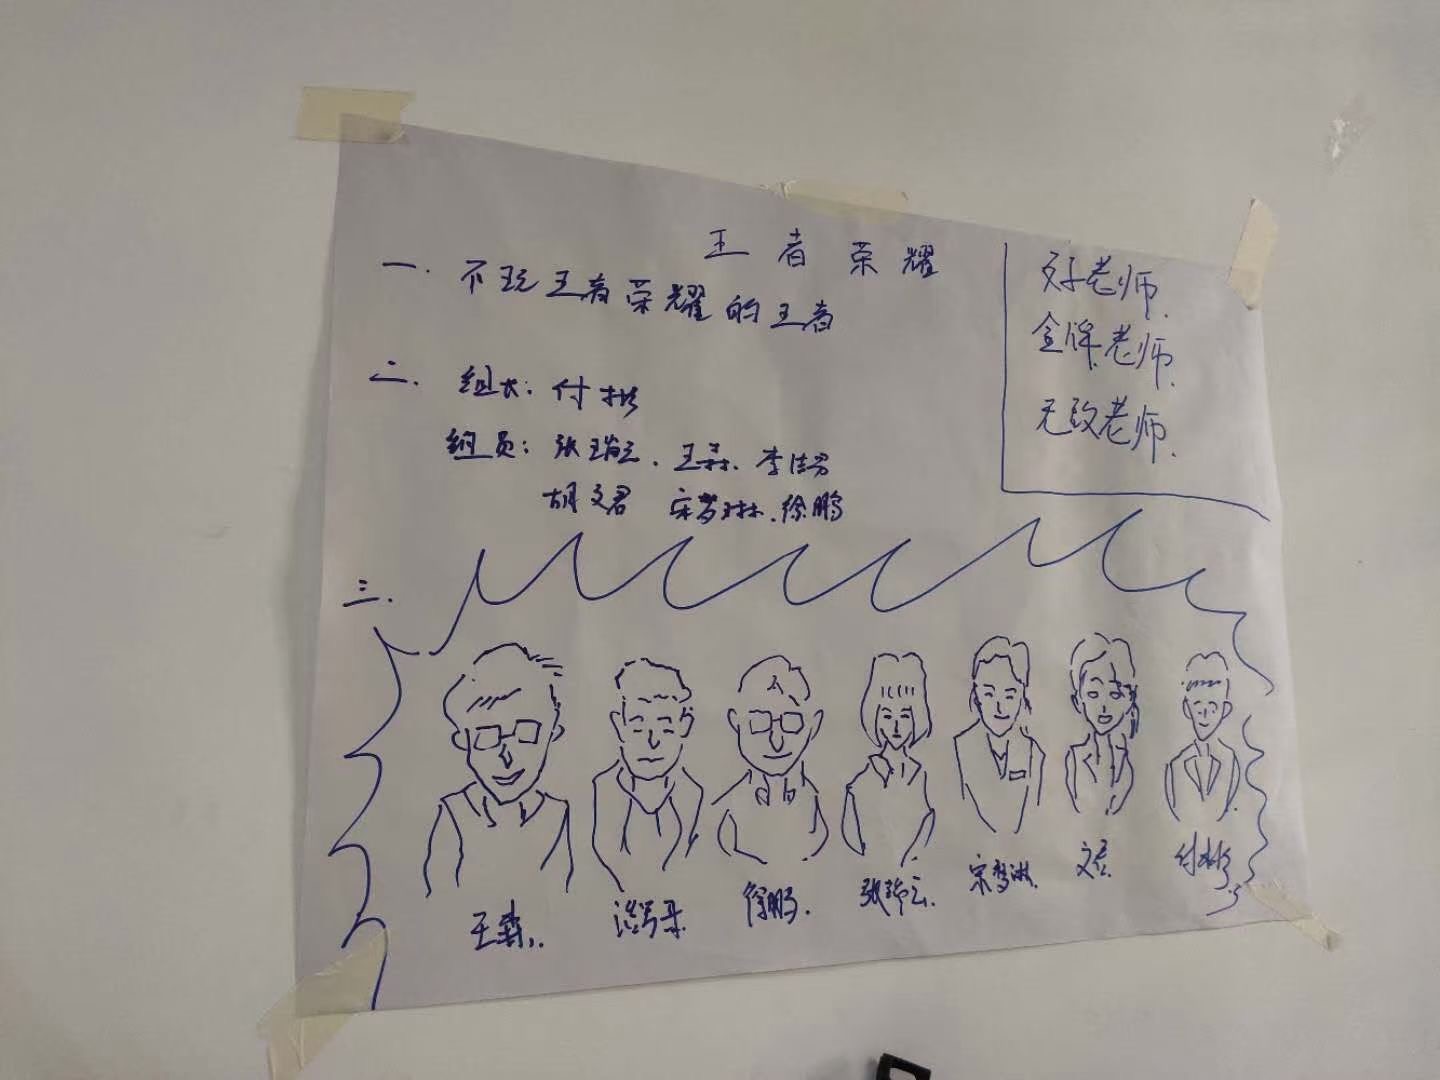 王者荣耀
一. 不玩王者荣耀的王者
二. 组长: 付彬
组员: 张瑞云. 王森. 李浩男
胡文君 宋梦琳. 徐鹏
三.
好老师.
金牌老师.
无敌老师.
王森.
徐鹏.
张瑞云.
宋梦琳.
文君.
付彬